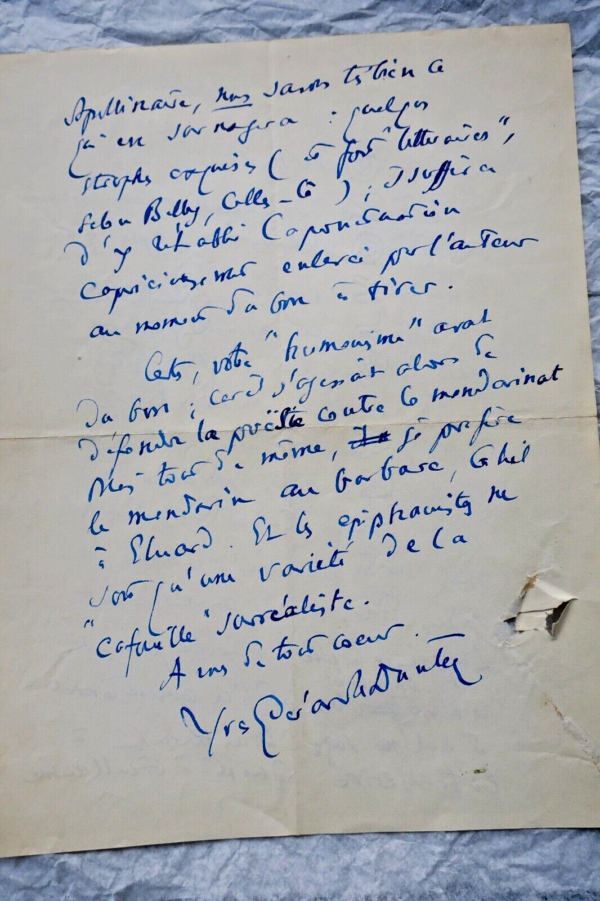 Apollinaire, nous savons très bien ce
qui en surnagera : quelques
strophes exquises ( et fort "littéraires",
selon Billy, Calles-là ) ; il suffira
d'y rétablir la ponctuation
capricieusement enlevée par l'auteur
au moment du bon à tirer.
Certes, votre "humanisme" avait
du bon ; car il s'agissait alors de
défendre la poésie contre le mandarinat
Mais tout de même, je préfère
le mandarin au barbare, Ghil
à Eluard. Et les épiphanistes ne
sont qu'une variété de la
"cafouille" surréaliste.
A vous de tout coeur.
Yves Gérard Le Dantec